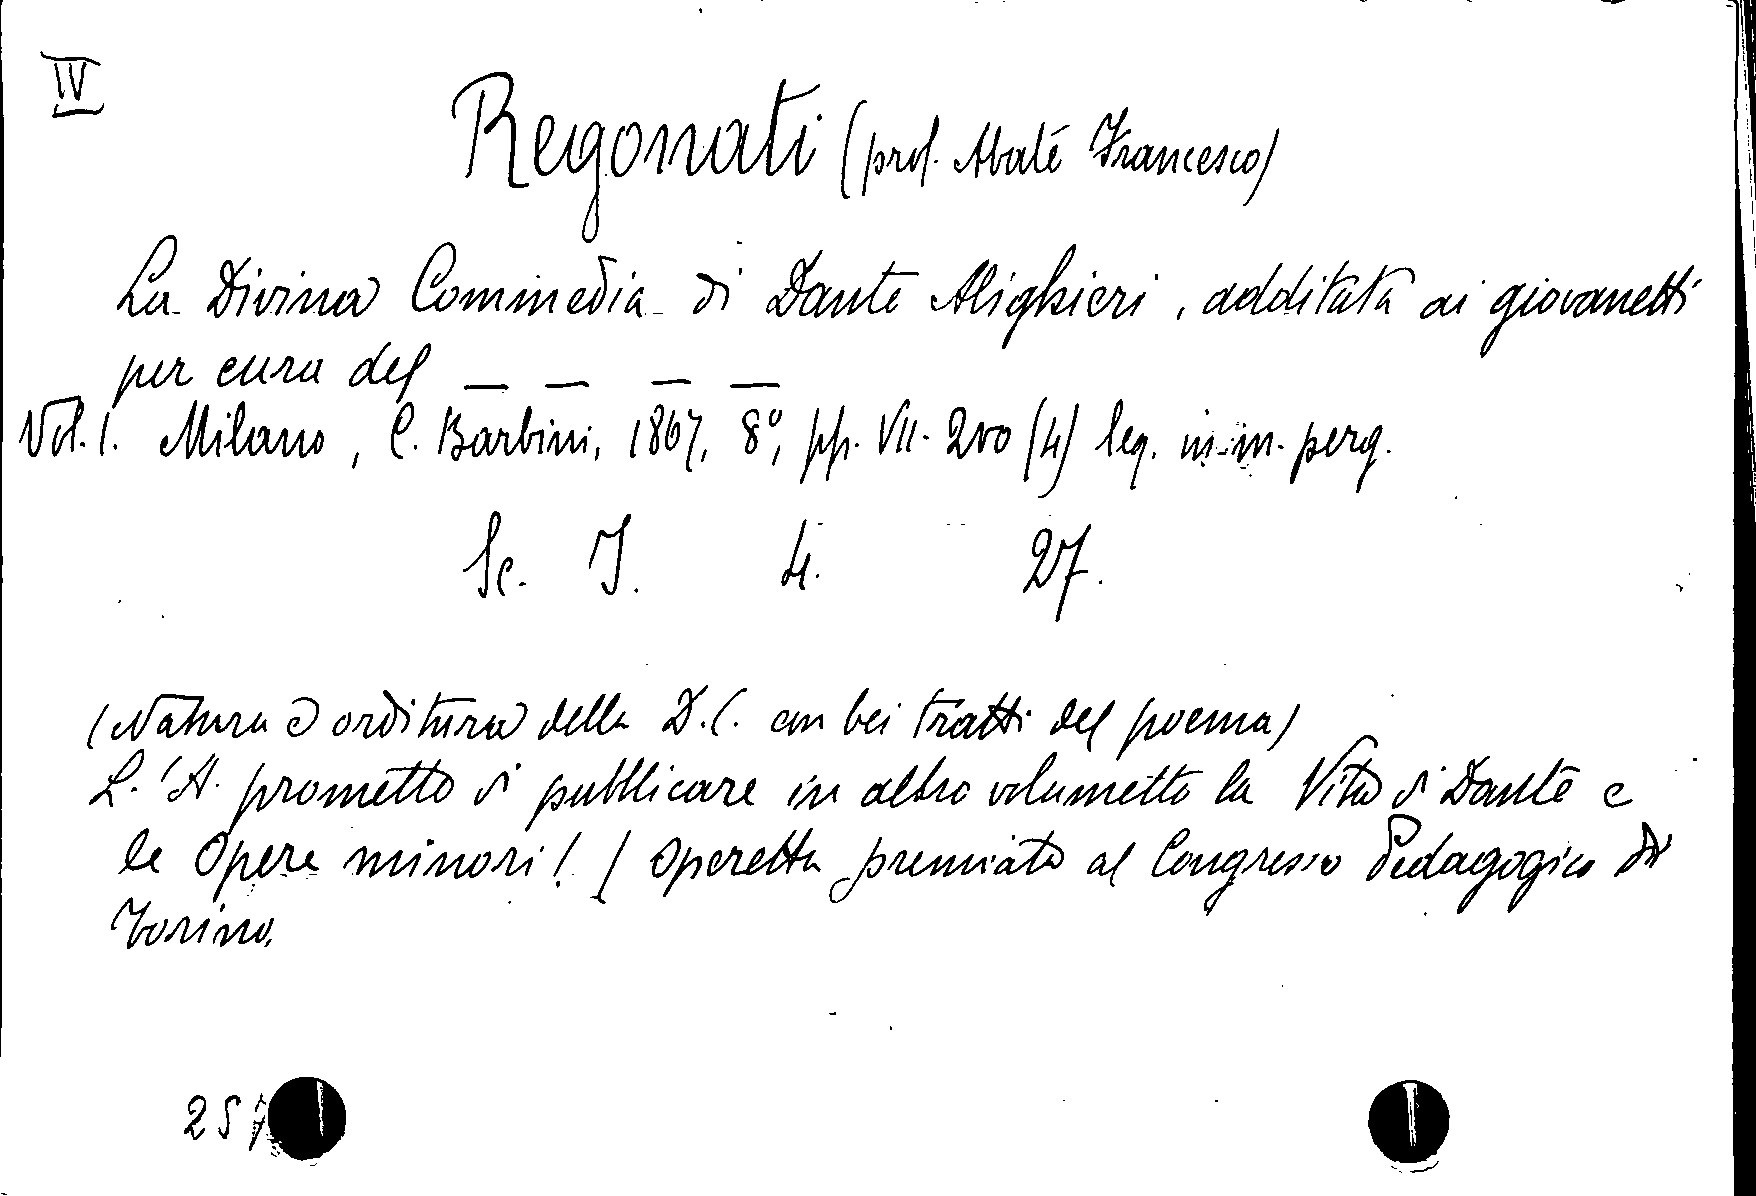 IV
Regonati (prof. Abate Francesco)
La Divina Commedia di Dante Alighieri, additata ai giovanetti
per cura del _ _ _ _
Vol. I. Milano, C. Barbini, 1867, 8°, pp. VII. 200 (4) leg. in m. perg.
Sc. I. 4. 27.
(Natura e orditura della D.C. con bei tratti del poema)
L.'A. promette di pubblicare in altro volumetto la Vita di Dante e
le Opere minori! / Operetta premiata al Congresso Pedagogico di
Torino.
257